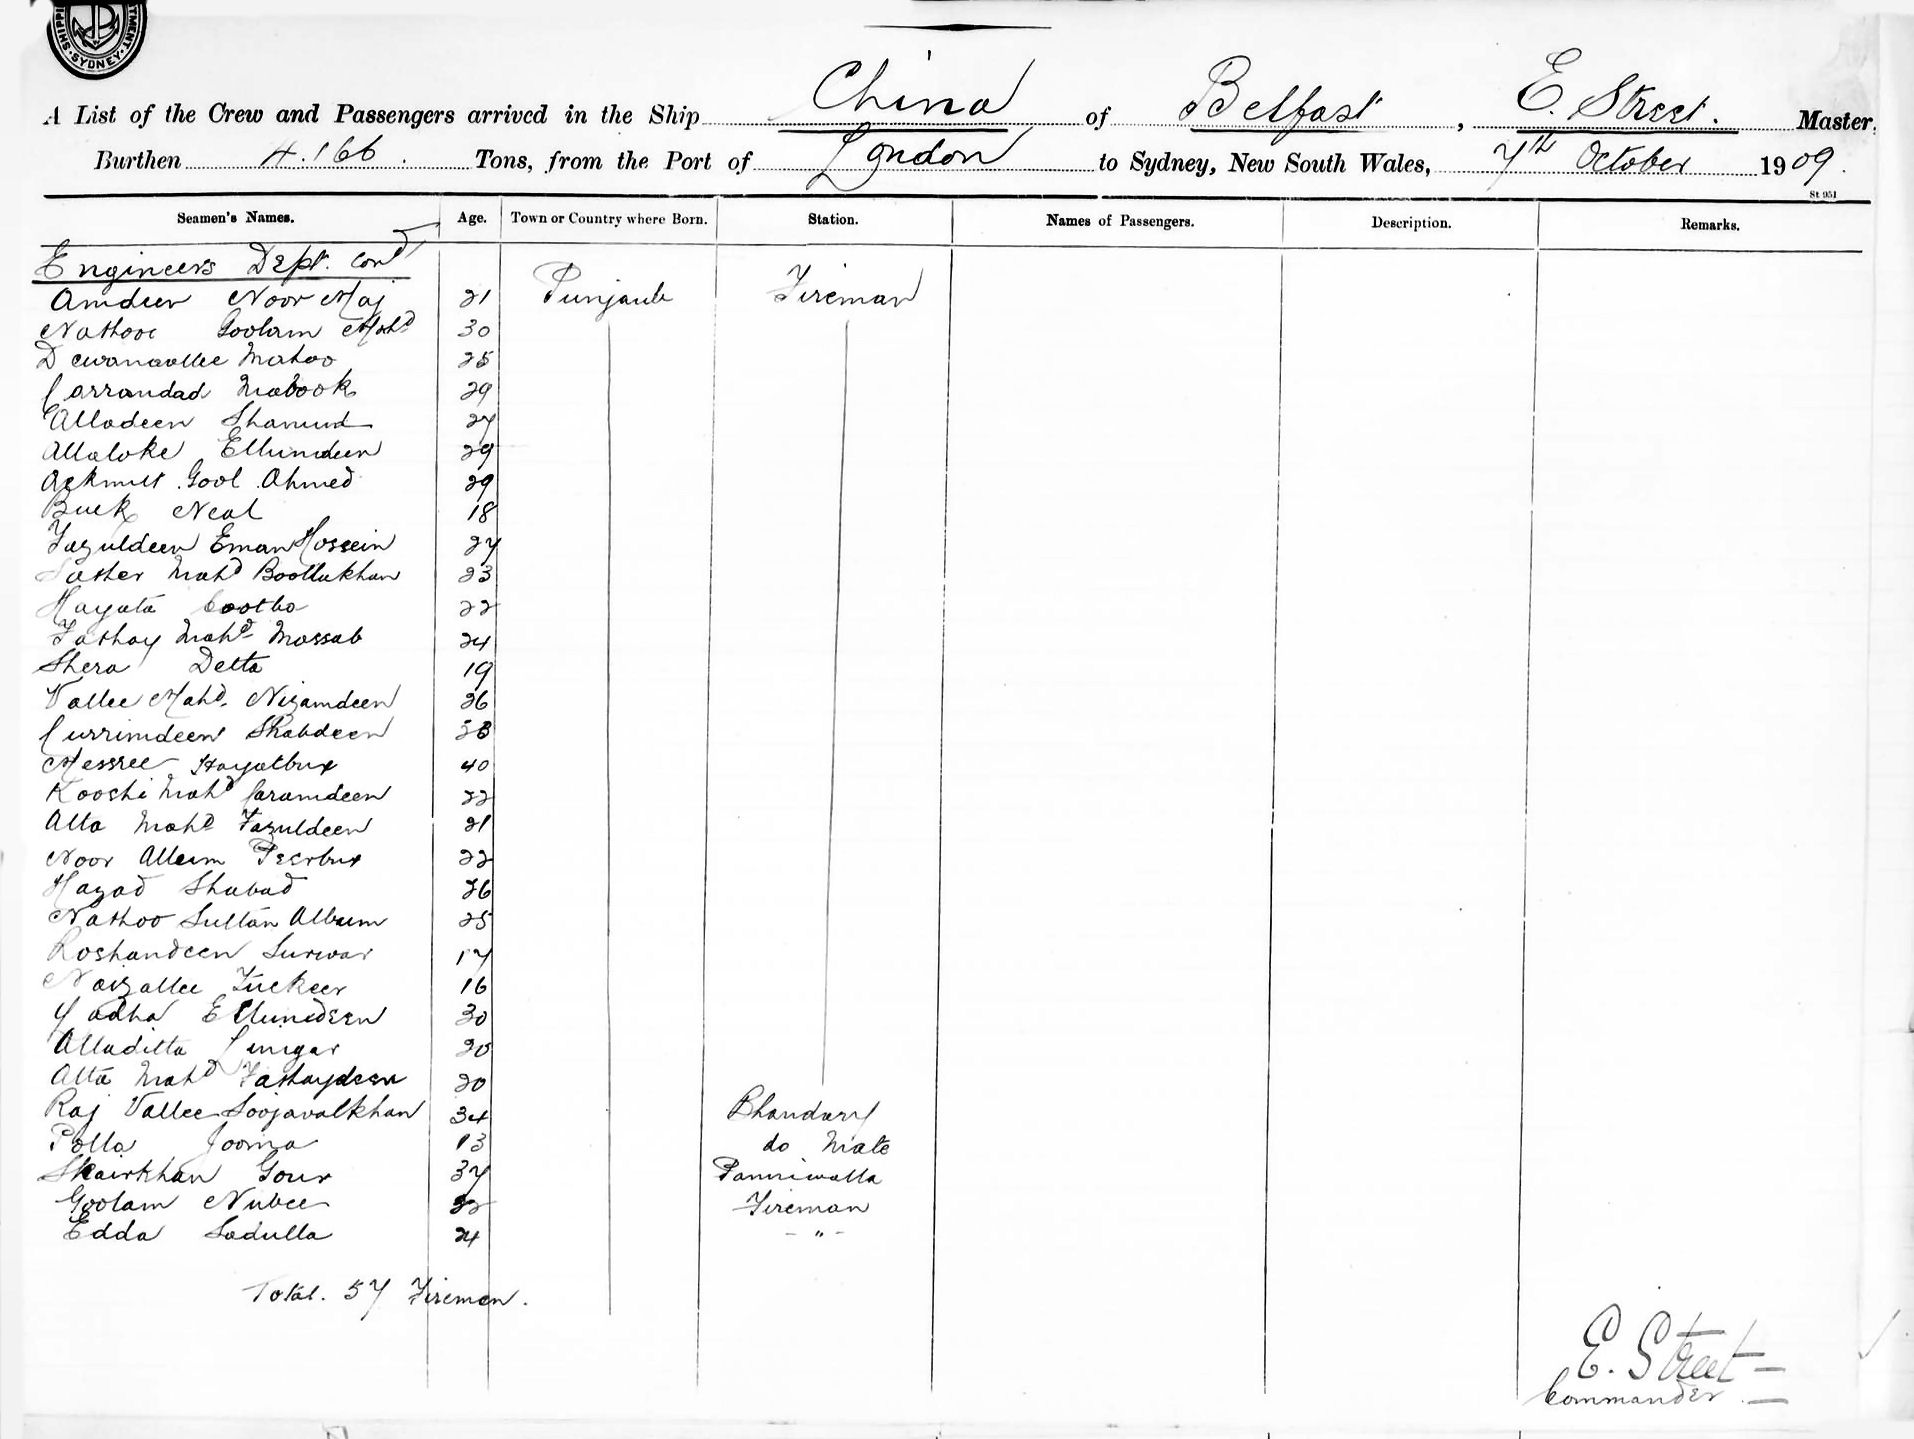 SHIPPI
TMENT
SYDNEY
A List of the Crew and Passengers arrived in the Ship China of Belfast, E. Street. Master,
Burthen 4.166. Tons, from the Port of London to Sydney, New South Wales, 7th October 1909.
St 951
Seamen's Names. Age. Town or Country where Born. Station. Names of Passengers. Description. Remarks.
Engineers Dept. Contd
Amdeen Noor Maj 21 Punjaub Fireman
Nathooe Goolam Mahd 30
Dewanavllee Mahoo 25
Carrandad Mabook 29
Alladeen Shamud 27
Allaloke Ellumdeen 29
Gool Ahmed 29
Buck Neal 18
Fazuldeen Eman Hossein 27
Father Mahd Boollakhan 23
Hayata Cootba 22
Fathay Mahd Mossab 24
Shera Detta 19
Vallee Mahd. Nizamdeen 26
Currimdeen Shabdeen
Messree Hayatbux 40
Kooshi Mahd Caramdeen 22
Alla Mahd Fazuldeen 21
Noor Alleim Peerbux 22
Hazad Shabad 26
Nathoo Sultan Allum 25
Roshandeen Surwar 17
Naizallee Fuckeer 16
Yadha Ellumdeen 30
Alladitta 20
Atta Mahd Fathaydeen 20
Raj Vallee Soojavalkhan 34 Bhandary
Polla Jooma 13 do Mate
Shairkhan Gour 37 Panniwalla
Goolam Nubee 22 Fireman
Edda Sadulla 24 - " -
Total. 57 Firemen.
E. Street
Commander